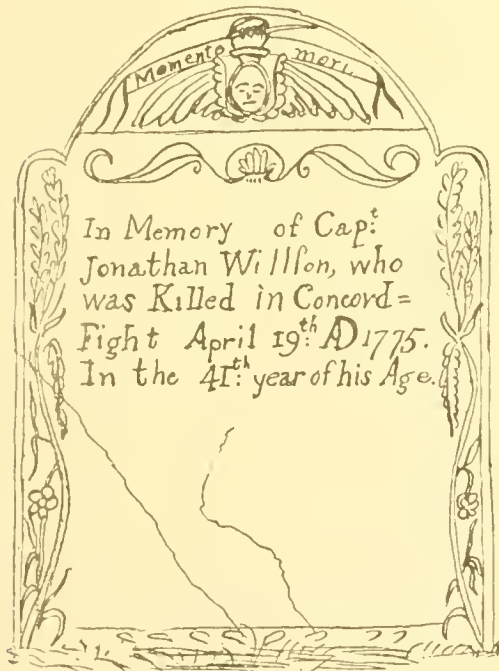 Momento mori.
In Memory of Capt.
Jonathan Willſon, who
was Killed in Concord=
Fight April 19th: AD 1775.
In the 41:th year of his Age.